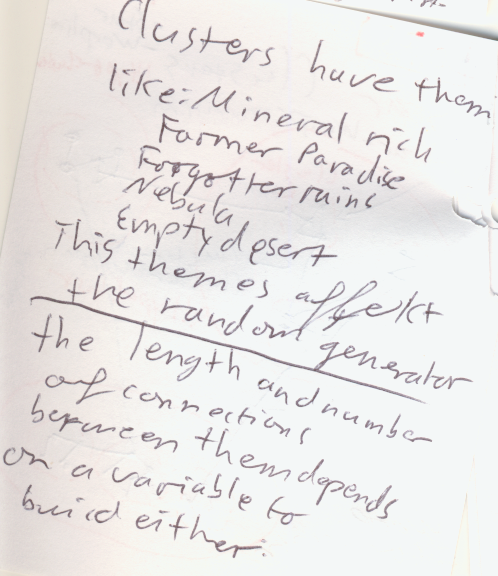 Clusters have them
like: Mineral rich
Farmer Paradise
Forgotten ruins
Nebula
Empty desert
This themes affekt
the random generator
the length and number
of connections
between them depends
on a variable to
buicd either.